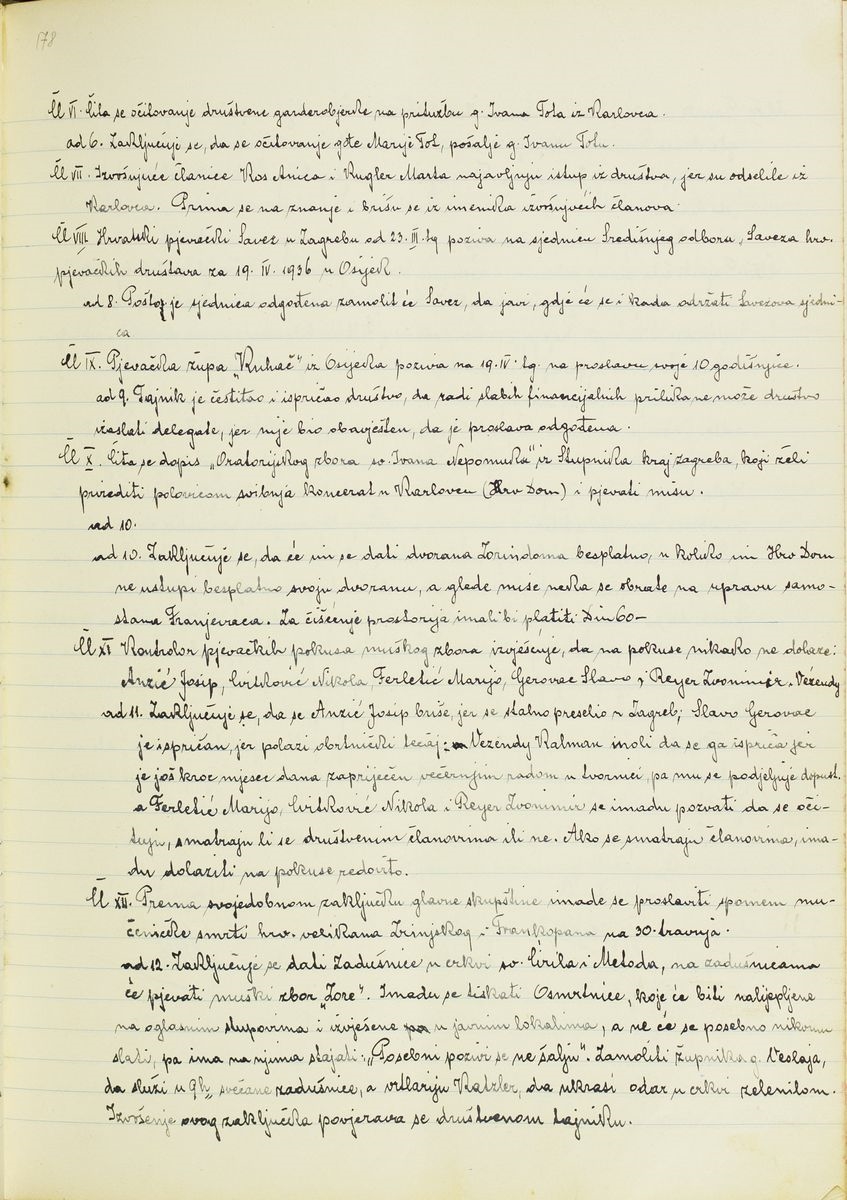 178
Čl VI. Čita se očitovanje društvene garderobjerke na pritužbu g. Ivana Tota iz Karlovca.
ad 6. Zaključuje se, da se očitovanje gđe Marije Tot, pošalje g. Ivanu Totu.
Čl VII. Izvršujuće članice Kos Anica i Kugler Marta najavljuju istup iz društva, jer su odselile iz
Karlovca. Prima se na znanje i brišu se iz imenika izvršujućih članova.
Čl VIII Hrvatski pjevački Savez u Zagrebu od 23. III. tg poziva na sjednicu Središnjeg odbora, Saveza hrv.
pjevačkih društava za 19. IV. 1936 u Osijek.
ad 8. Pošto je sjednica odgođena zamolit će Savez, da javi, gdje će se i kada održati Savezova sjedni-
ca
Čl IX. Pjevačka župa „Kuhač" iz Osijeka poziva na 19. IV. tg. na proslavu svoje 10 godišnjice.
ad 9. Tajnik je čestitao i ispričao društvo, da radi slabih financijalnih prilika ne može društvo
izaslati delegate, jer nije bio obavješten, da je proslava odgođena.
Čl X. Čita se dopis „Oratorijskog zbora sv. Ivana Nepomuka" iz Stupnika kraj zagreba, koji želi
prirediti polovicom svibnja koncerat u Karlovcu (Hrv Dom) i pjevati misu.
ad 10.
ad 10. Zaključuje se, da će im se dati dvorana Zorindoma besplatno, u koliko im Hrv Dom
ne ustupi besplatno svoju dvoranu, a glede mise neka se obrate na upravu samo-
stana Franjevaca. Za čišćenje prostorija imali bi platiti Din 60-
Čl XI Kontrolor pjevačkih pokusa muškog zbora izvješćuje, da na pokuse nikako ne dolaze:
Anzić Josip, Cvitković Nikola, Ferletić Marijo, Gerovac Slavo i Reyer Zvonimir. Vezendy
ad 11. Zaključuje se, da se Anzić Josip briše, jer se stalno preselio u Zagreb; Slavo Gerovac
je ispričan, jer polazi obrtnički tečaj; Vezendy Kalman moli da se ga ispriča jer
je još kroz mjesec dana zapriječen večernjim radom u tvornici, pa mu se podjeljuje dopust.
a Ferletić Marijo, Cvitković Nikola i Reyer Zvonimir se imadu pozvati da se oči-
tuju, smatraju li se društvenim članovima ili ne. Ako se smatraju članovima, ima-
du dolaziti na pokuse redovito.
Čl XII. Prema svojedobnom zaključku glavne skupštine imade se proslaviti spomen mu-
čeničke smrti hrv. velikana Zrinjskog i Frankopana na 30. travnja.
ad 12. Zaključuje se dati Zadušnice u crkvi sv. Ćirila i Metoda, na zadušnicama
će pjevati muški zbor „Zore". Imadu se tiskati Osmrtnice, koje će biti nalijepljene
na oglasnim stupovima i izvješene u javnim lokalima, a ne će se posebno nikomu
slati, pa ima na njima stajati: „Posebni pozivi se ne šalju". Zamoliti župnika g. Veslaja,
da služi u 9h svečane zadušnice, a vrtlariju Katzler, da ukrasi odar u crkvi zelenilom.
Izvršenje ovog zaključka povjerava se društvenom tajniku.